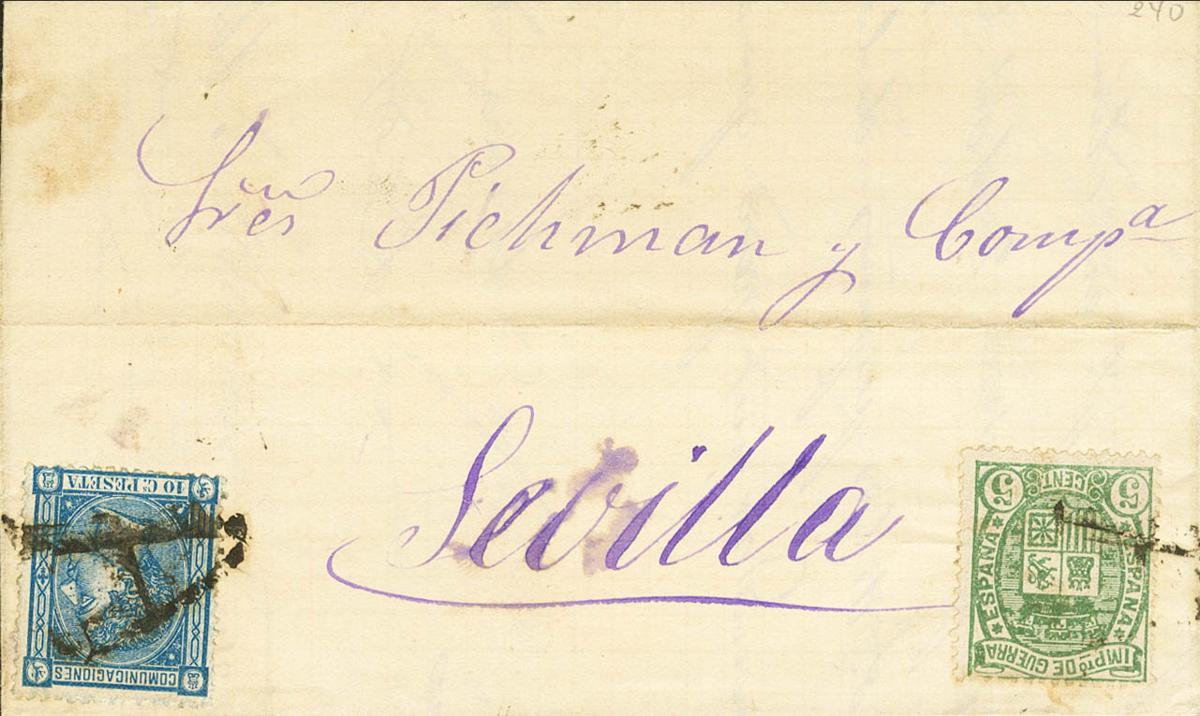 240
Sres Pickman y Compª
Sevilla
10 Cs PESETA
COMUNICACIONES
5 CENT. 5
ESPAÑA ESPAÑA
IMPTO DE GUERRA